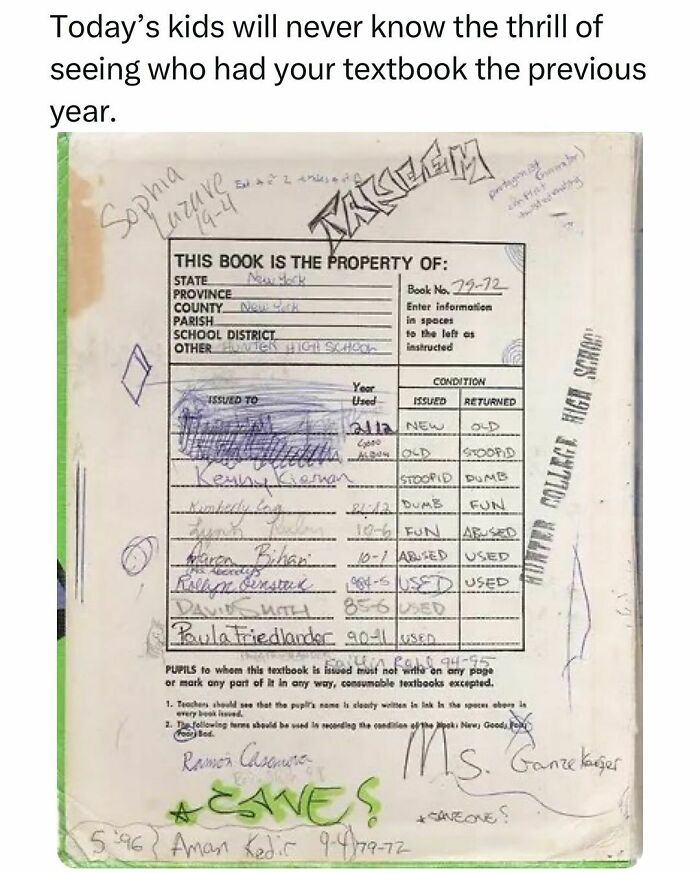 Today’s kids will never know the thrill of
seeing who had your textbook the previous
year.
Sophia
Lazare
9-4
TAKEEM
THIS BOOK IS THE PROPERTY OF:
STATE New York
PROVINCE
COUNTY New York
PARISH
SCHOOL DISTRICT
OTHER HUNTER HIGH SCHOOL
Book No. 79-72
Enter information
in spaces
to the left as
instructed
ISSUED TO Year Used CONDITION
ISSUED RETURNED
2112 NEW OLD
OLD STOOPID
Kenny Kiernan STOOPID DUMB
Kimberly DUMB FUN
Lynn 10-6 FUN ABUSED
Aaron Bihari 10-1 ABUSED USED
1984-5 USED USED
DAVID SMITH 85-6 USED
Paula Friedlander 90-91 USED
94-95
HUNTER COLLEGE HIGH SCHOOL
PUPILS to whom this textbook is issued must not write on any page
or mark any part of it in any way, consumable textbooks excepted.
1. Teachers should see that the pupil's name is clearly written in ink in the spaces above in
every book issued.
2. The following terms should be used in recording the condition of the book: New; Good; Fair;
Poor; Bad.
Ramon Casanova
Ms. Ganzekaufer
SAVE?
SAVEONE?
5 '96 Aman Kedir 9-4 79-72